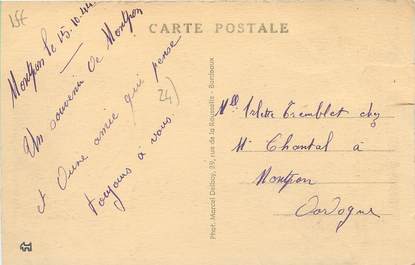 15€
CARTE POSTALE
Montpon le 15.10.44
Un souvenir de Montpon
et d'une amie qui pense
toujours à vous.
24)
Phot. Marcel Delboy, 29, rue de la Rousselle - Bordeaux
Mlle Arlette Tremblet chez
Mr Chantal à
Montpon
Dordogne